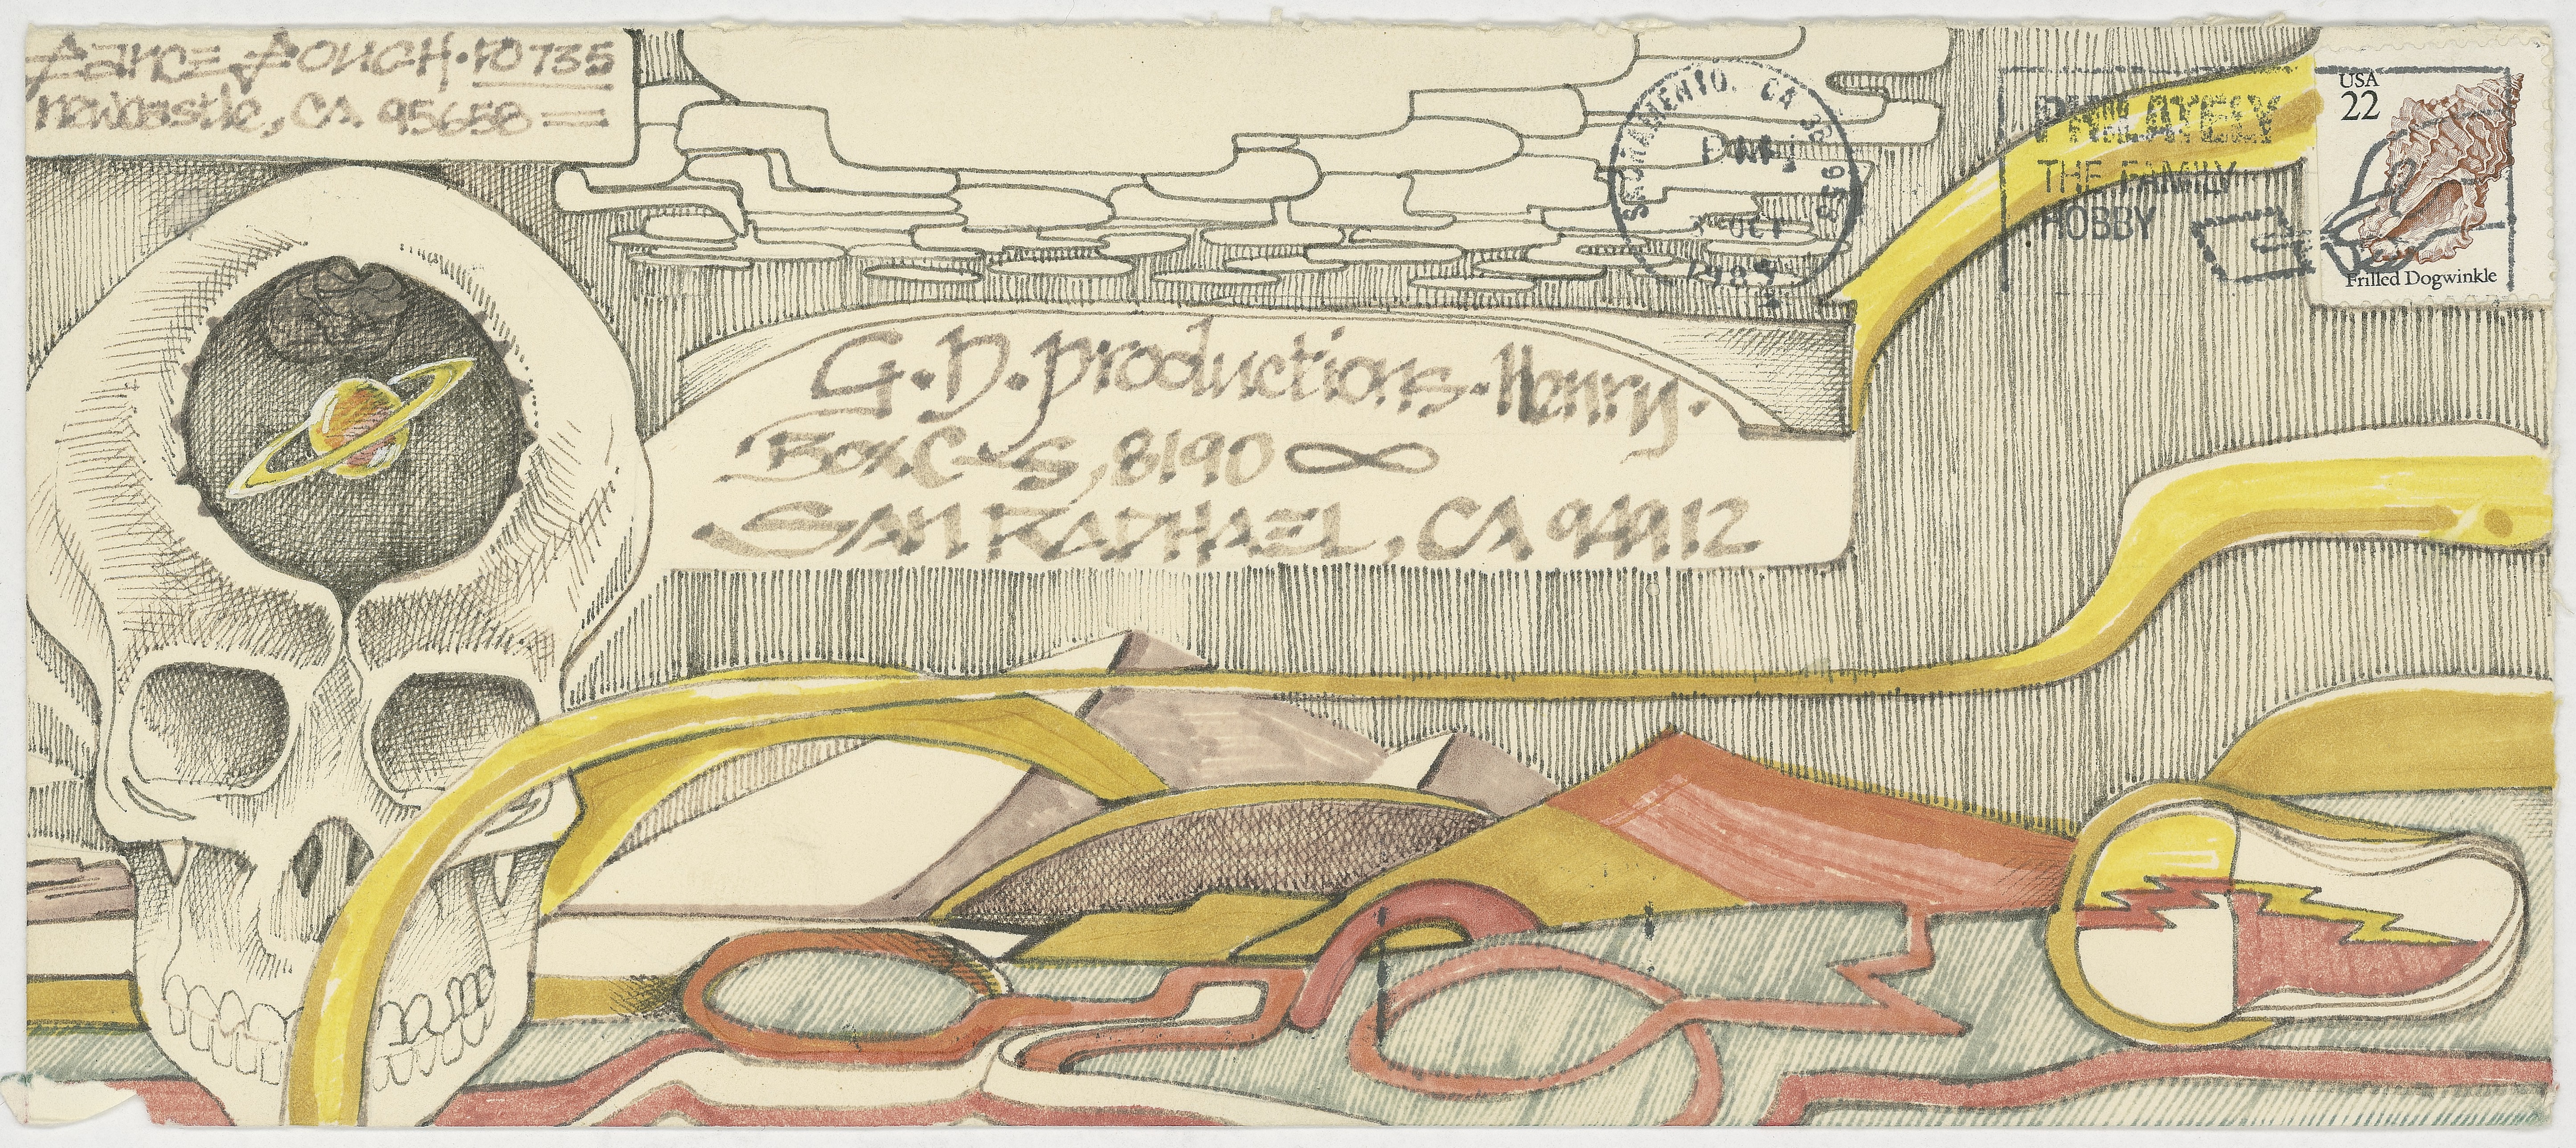 Newcastle, CA 95658
SACRAMENTO, CA
PM
OCT
PHILATELY
THE FAMILY
HOBBY
USA
22
Frilled Dogwinkle
G.D. Productions · Henry.
Box C-S, 8190 ∞
SAN RAPHAEL, CA 94912